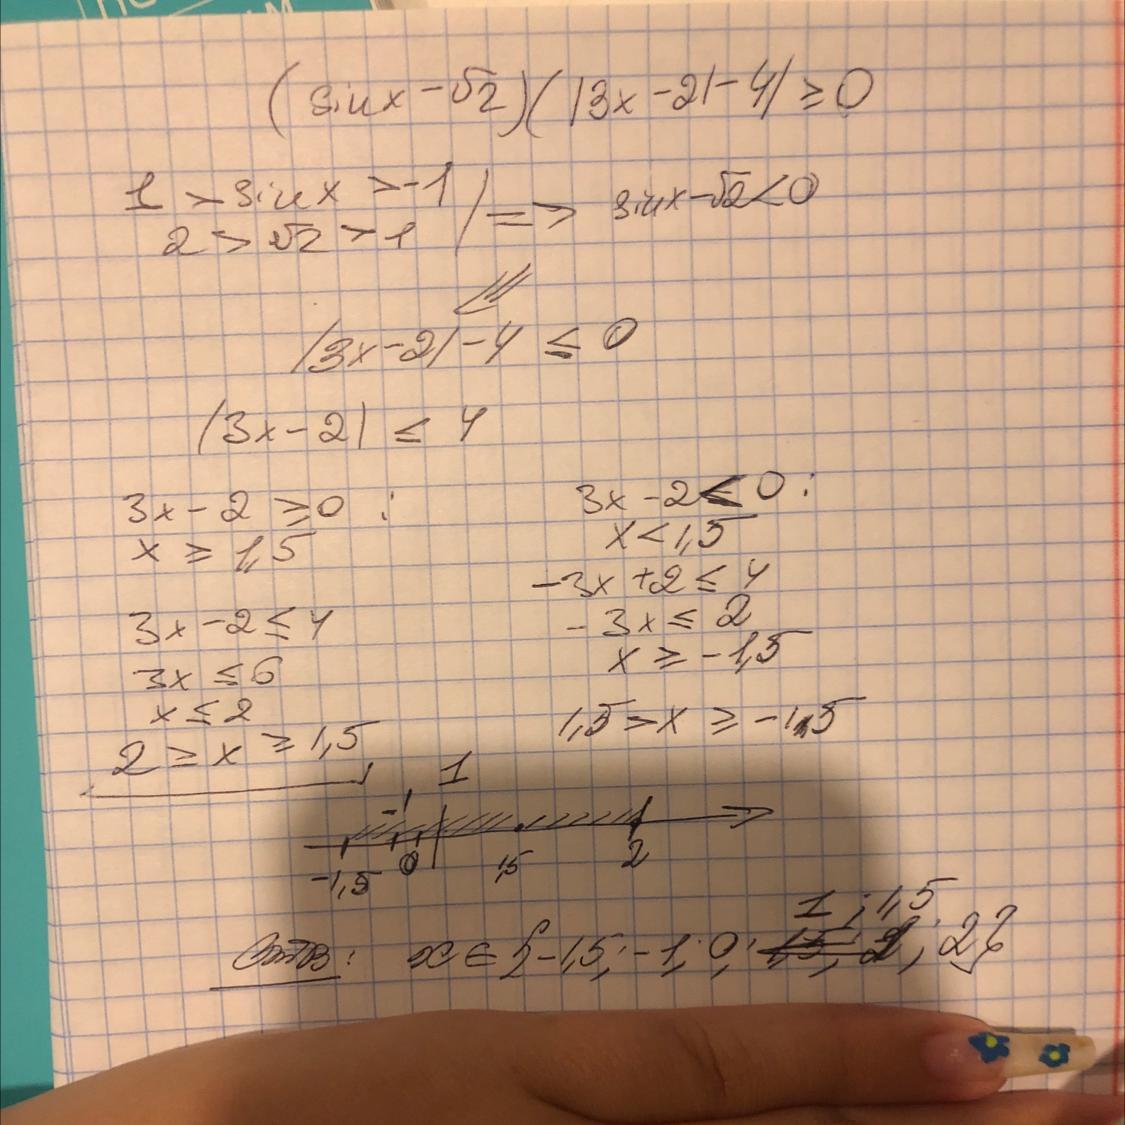 (sinx - √2)(|3x - 2| - 4) ≥ 0
1 > sinx > -1
2 > √2 > 1 | => sinx - √2 < 0
|3x - 2| - 4 ≤ 0
|3x - 2| ≤ 4
3x - 2 ≥ 0 :
x ≥ 1,5
3x - 2 ≤ 4
3x ≤ 6
x ≤ 2
2 ≥ x ≥ 1,5
3x - 2 < 0 :
x < 1,5
-3x + 2 ≤ 4
-3x ≤ 2
x ≥ -1,5
1,5 > x ≥ -1,5
-1 1
-1,5 0 1,5 2
1 ; 1,5
Отв: x ∈ {-1,5; -1; 0; ; 2}